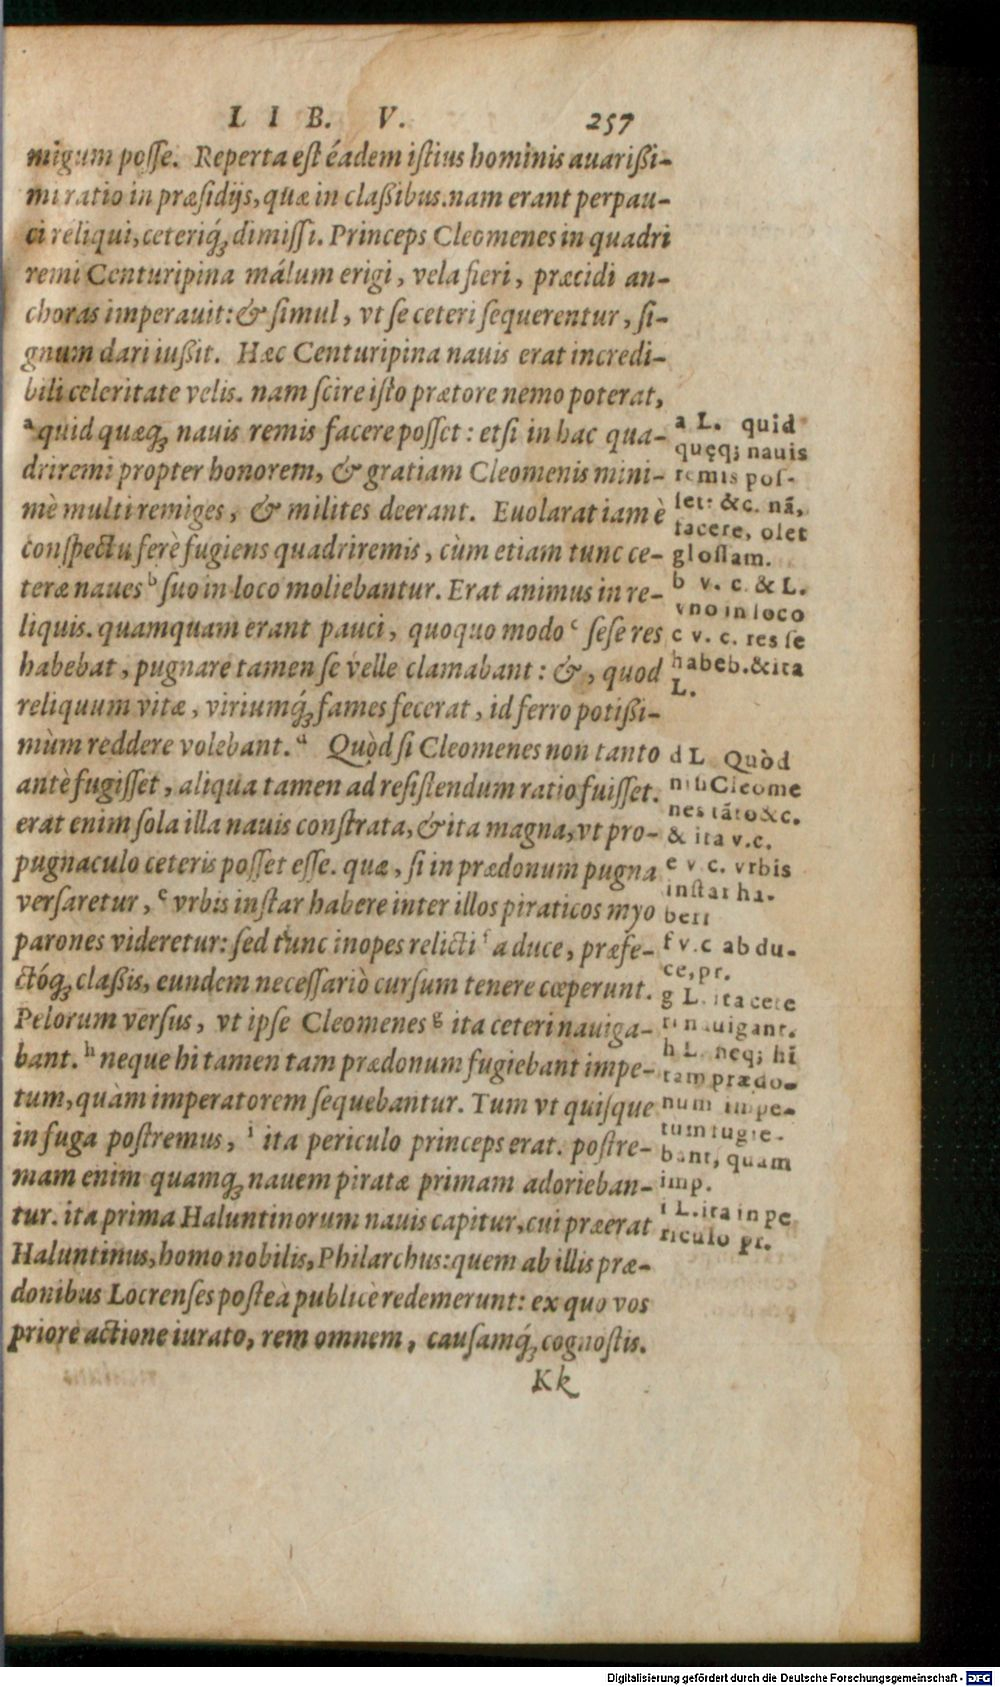 LIB. V. 257
migum posse. Reperta est éadem istius hominis auarißi-
mi ratio in præsidijs, quæ in claßibus. nam erant perpau-
ci reliqui, ceteriq́ꝫ dimissi. Princeps Cleomenes in quadri
remi Centuripina málum erigi, vela fieri, præcidi an-
choras imperauit: & simul, vt se ceteri sequerentur, si-
gnum dari iußit. Hæc Centuripina nauis erat incredi-
bili celeritate velis. nam scire isto prætore nemo poterat,
ᵃ quid quæqꝫ nauis remis facere posset: etsi in hac qua-
driremi propter honorem, & gratiam Cleomenis mini-
mè multi remiges, & milites deerant. Euolarat iam è
conspectu ferè fugiens quadriremis, cùm etiam tunc ce-
teræ naues ᵇ suo in loco moliebantur. Erat animus in re-
liquis. quamquam erant pauci, quoquo modo ᶜ sese res
habebat, pugnare tamen se velle clamabant: &, quod
reliquum vitæ, viriumq́ꝫ fames fecerat, id ferro potißi-
mùm reddere volebant. ᵈ Quòd si Cleomenes non tanto
antè fugisset, aliqua tamen ad resistendum ratio fuisset.
erat enim sola illa nauis constrata, & ita magna, vt pro-
pugnaculo ceteris posset esse. quæ, si in prædonum pugna
versaretur, ᵉ vrbis instar habere inter illos piraticos myo
parones videretur: sed tunc inopes relicti ᶠ a duce, præfe-
ctóqꝫ claßis, eundem necessariò cursum tenere cœperunt.
Pelorum versus, vt ipse Cleomenes ᵍ ita ceteri nauiga-
bant. ʰ neque hi tamen tam prædonum fugiebant impe-
tum, quàm imperatorem sequebantur. Tum vt quisque
in fuga postremus, ⁱ ita periculo princeps erat. postre-
mam enim quamqꝫ nauem piratæ primam adorieban-
tur. ita prima Haluntinorum nauis capitur, cui præerat
Haluntinus, homo nobilis, Philarchus: quem ab illis præ-
donibus Locrenses posteà publicè redemerunt: ex quo vos
priore actione iurato, rem omnem, causamq́ꝫ cognostis.
Kk
a L. quid
quęq; nauis
remis pos-
set: &c. nã,
facere, olet
glossam.
b v. c. & L.
vno in loco
c v. c. res se
habeb. & ita
L.
d L Quòd
nisi Cleome
nes tãto &c.
& ita v.c.
e v.c. vrbis
instar ha-
beri
f v.c ab du-
ce, pr.
g L. ita cete
ri nauigant.
h L. neq; hi
tam prædo-
num impe-
tum fugie-
bant, quam
imp.
i L. ita in pe
riculo pr.
Digitalisierung gefördert durch die Deutsche Forschungsgemeinschaft - DFG